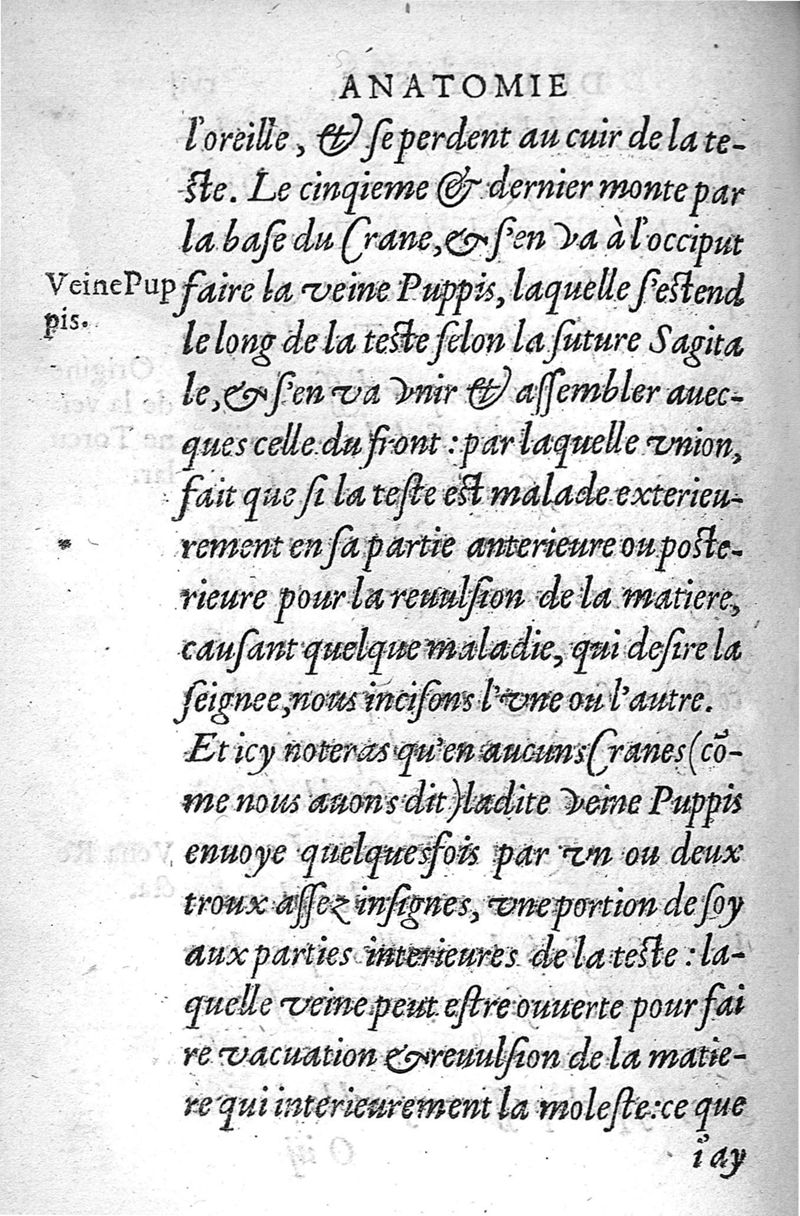 ANATOMIE
l'oreille, & se perdent au cuir de la te-
ste. Le cinqieme & dernier monte par
la base du Crane, & s'en va à l'occiput
Veine Pup
pis.
faire la veine Puppis, laquelle s'estend
le long de la teste selon la suture Sagita
le, & s'en va vnir & assembler auec-
ques celle du front : par laquelle vnion,
fait que si la teste est malade exterieu-
rement en sa partie anterieure ou poste-
rieure pour la reuulsion de la matiere,
causant quelque maladie, qui desire la
seignee, nous incisons l'vne ou l'autre.
Et icy noteras qu'en aucuns Cranes (cõ-
me nous auons dit) ladite veine Puppis
enuoye quelquesfois par vn ou deux
troux assez insignes, vne portion de soy
aux parties interieures de la teste : la-
quelle veine peut estre ouuerte pour fai
re vacuation & reuulsion de la matie-
re qui interieurement la moleste: ce que
i'ay